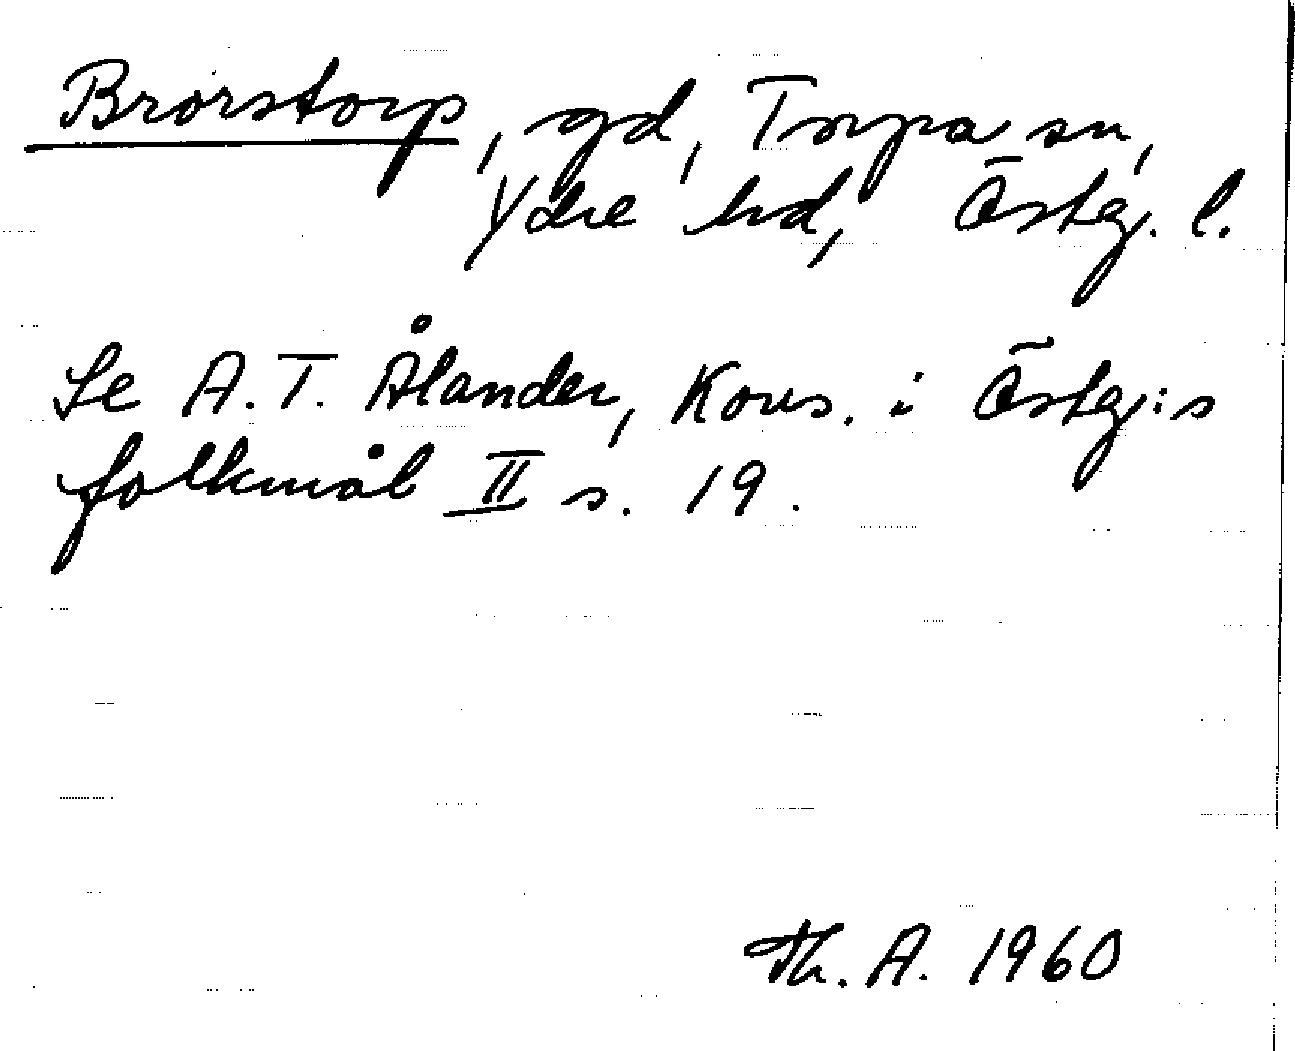 Brorstorp, gd, Torpa sn,
Ydre hd, Östg. l.
Se A.T. Ålander, Kons. i Östg:s
folkmål II s. 19.
Th. A. 1960